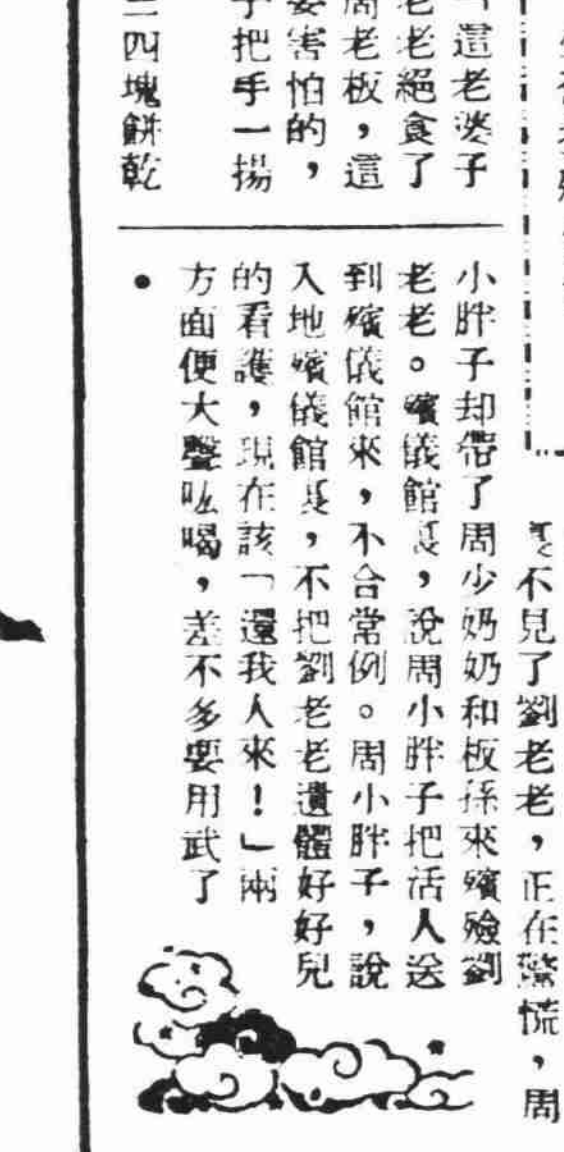 「這老婆子
老老絕食了
周老板，這
要害怕的，
子把手一揚
四塊餅乾
不見了劉老老，正在驚慌，周
小胖子却帶了周少奶奶和板孫來殯殮劉
老老。殯儀館長，說周小胖子把活人送
到殯儀館來，不合常例。周小胖子，說
入地殯儀館長，不把劉老老遺體好好兒
的看護，現在該「還我人來！」兩
方面便大聲吆喝，差不多要用武了
•